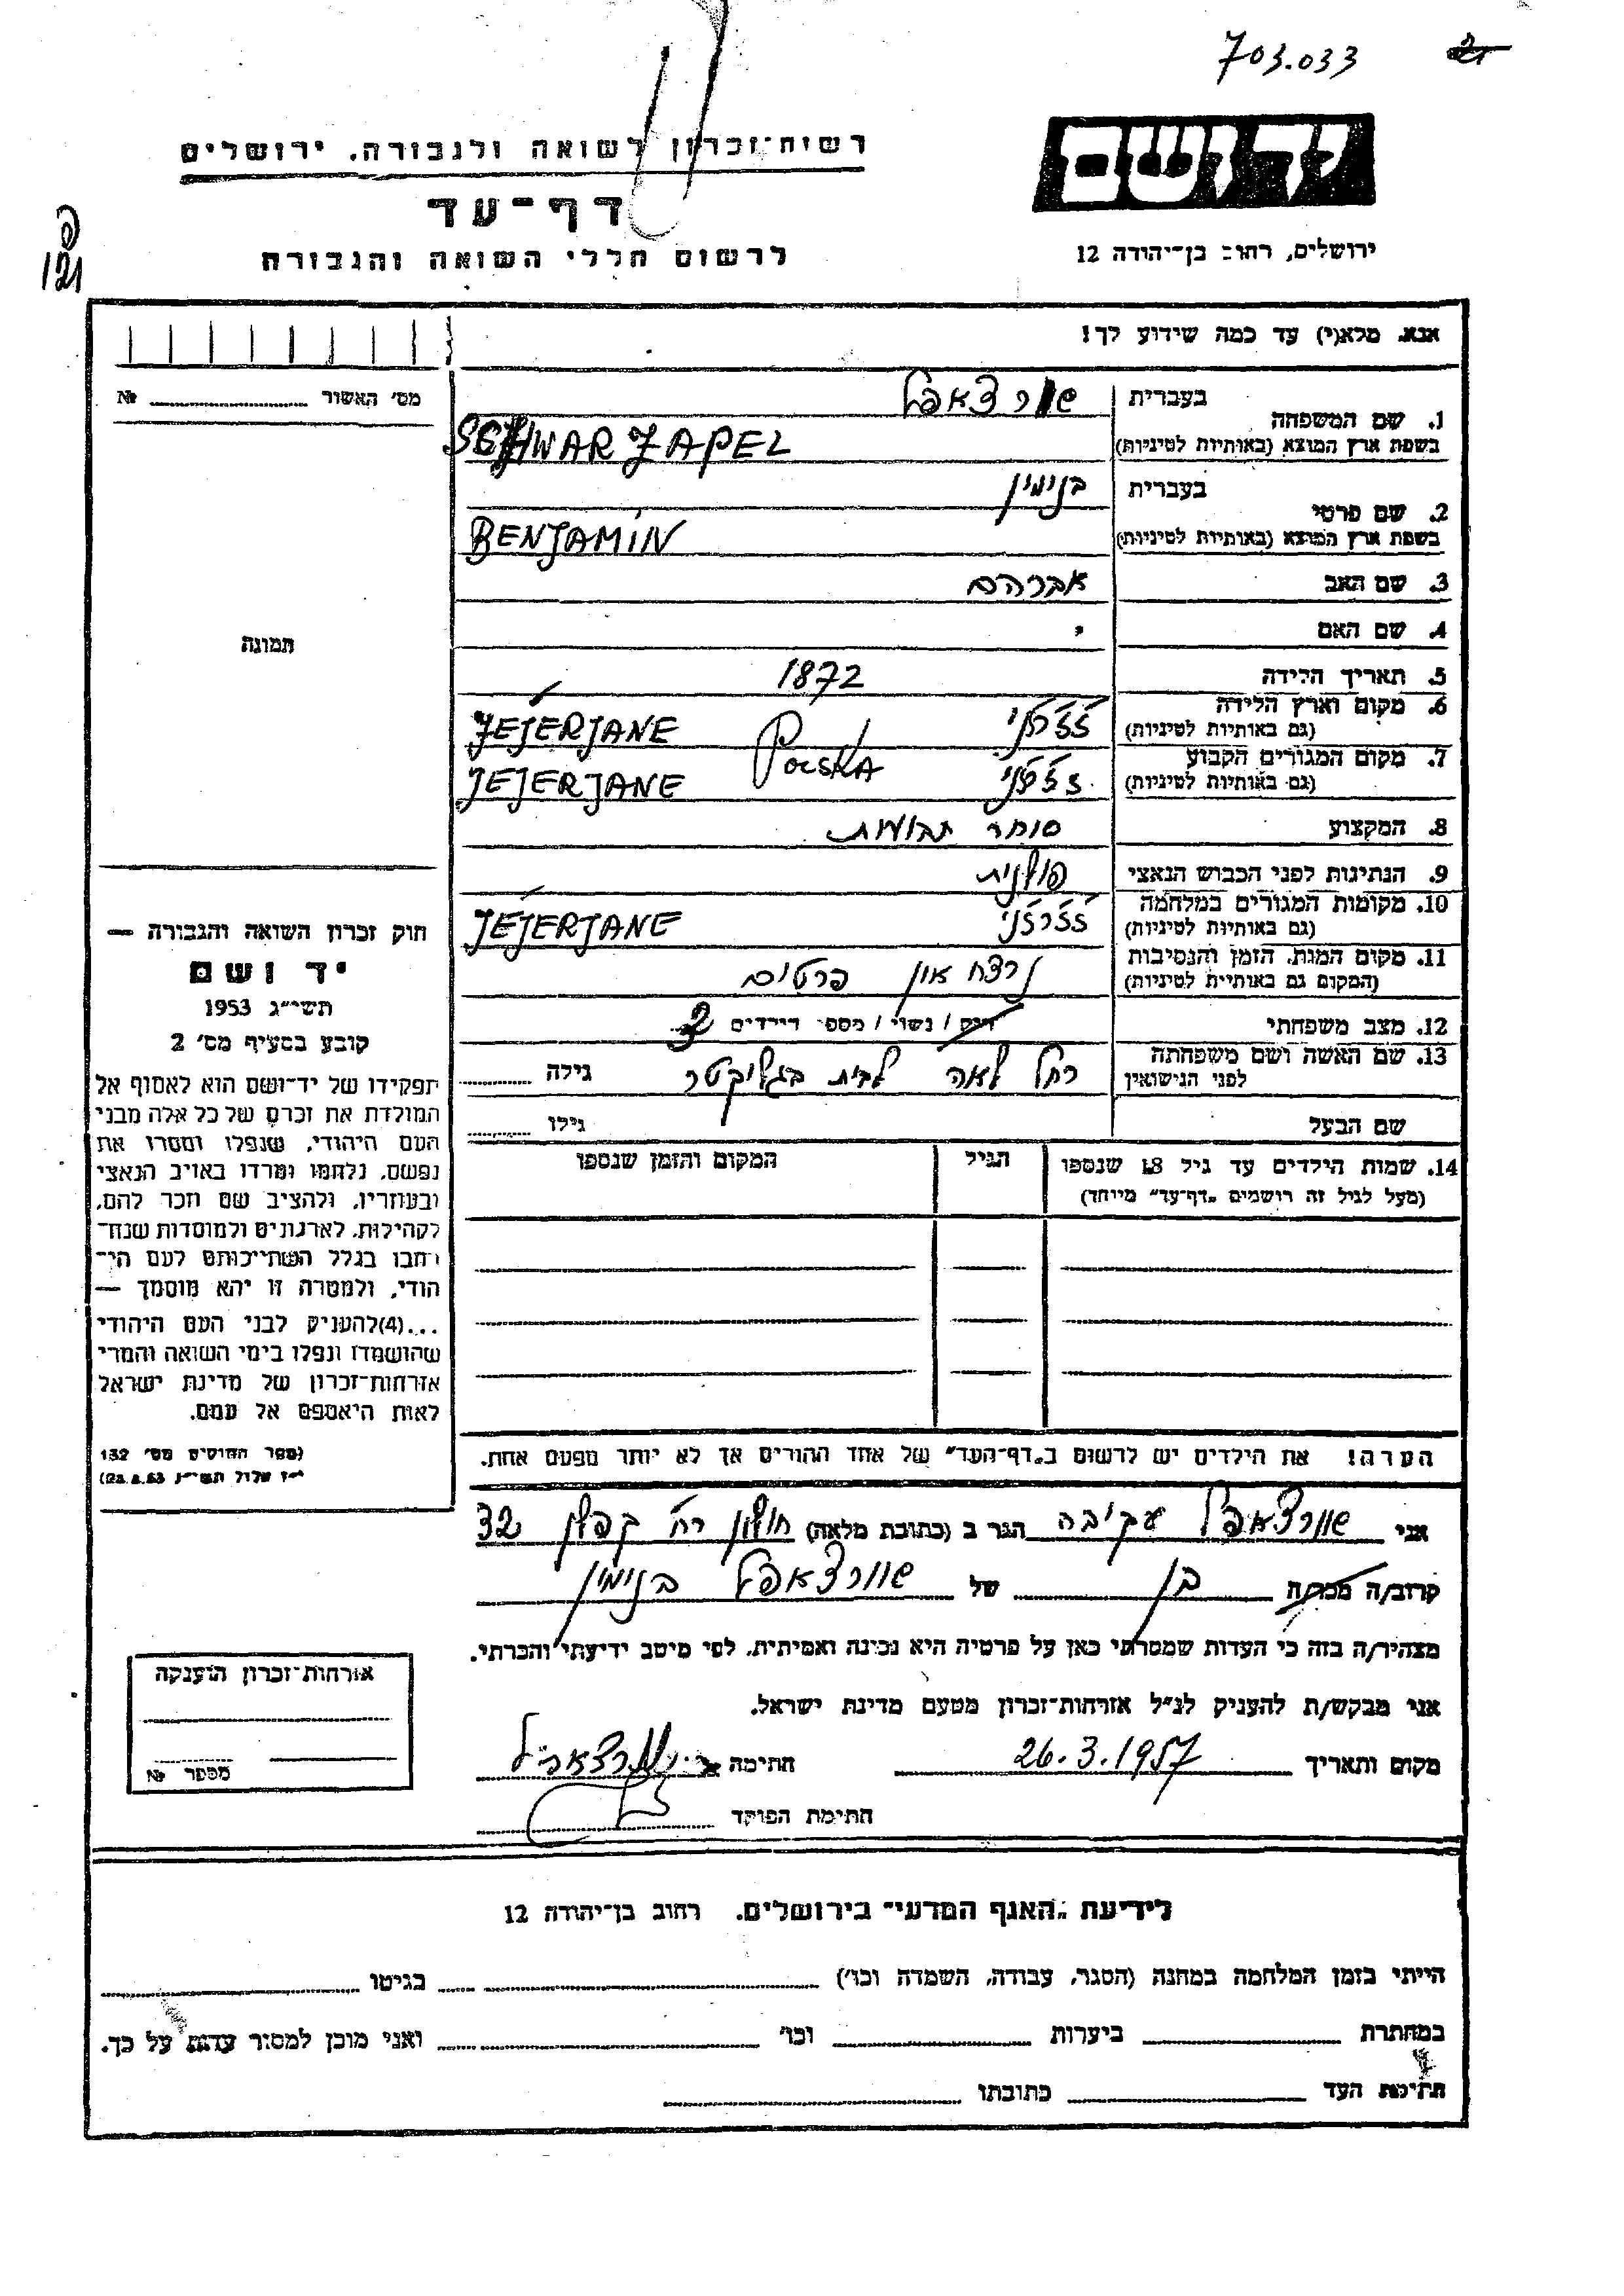 703.033
יד ושם
רשות־זכרון לשואה ולגבורה, ירושלים
דף־עד
ירושלים, רחוב בן־יהודה 12
לרשום חללי השואה והגבורה
121
אנא, מלא(י) עד כמה שידוע לך!
מס' האשור № 
1. שם המשפחה
בעברית שוורצאפל
בשפת ארץ המוצא (באותיות לטיניות) SCHWARZAPEL
2. שם פרטי
בעברית בנימין
בשפת ארץ המוצא (באותיות לטיניות) BENJAMIN
3. שם האב אברהם
4. שם האם
תמונה
5. תאריך הלידה 1872
6. מקום וארץ הלידה
(גם באותיות לטיניות) JEJERJANE POLSKA
7. מקום המגורים הקבוע
(גם באותיות לטיניות) JEJERJANE
8. המקצוע סוחר תבואות
9. הנתינות לפני הכבוש הנאצי פולנית
10. מקומות המגורים במלחמה
(גם באותיות לטיניות) JEJERJANE
11. מקום המות, הזמן והנסיבות
(המקום גם באותיות לטיניות) נרצח און פרטים
12. מצב משפחתי רוק / נשוי / מספר הילדים
13. שם האשה ושם משפחתה
לפני הנישואין רחל לאה לבית גילה
שם הבעל גילו
14. שמות הילדים עד גיל 18 שנספו
(מעל לגיל זה רושמים "דף־עד" מיוחד)
הגיל
המקום והזמן שנספו
חוק זכרון השואה והגבורה —
יד ושם
תשי"ג 1953
קובע בסעיף מס' 2
תפקידו של יד־ושם הוא לאסוף אל
המולדת את זכרם של כל אלה מבני
העם היהודי, שנפלו ומסרו את
נפשם, נלחמו ומרדו באויב הנאצי
ובעוזריו, ולהציב שם וזכר להם,
לקהילות, לארגונים ולמוסדות שנח־
רבו בגלל השתייכותם לעם הי־
הודי, ולמטרה זו יהא מוסמך —
...(4)להעניק לבני העם היהודי
שהושמדו ונפלו בימי השואה והמרי
אזרחות־זכרון של מדינת ישראל
לאות היאספם אל עמם.
(ספר החוקים מס' 132
י"ז אלול תשי"ג 28.8.53)
הערה! את הילדים יש לרשום ב"דף־העד" של אחד ההורים אך לא יותר מפעם אחת.
אני שוורצאפל עקיבה הגר ב (כתובת מלאה) חולון רח' קפלן 32
קרוב/ה מכר/ה בן של שוורצאפל בנימין
מצהיר/ה בזה כי העדות שמסרתי כאן על פרטיה היא נכונה ואמיתית, לפי מיטב ידיעתי והכרתי.
אני מבקש/ת להעניק לנ"ל אזרחות־זכרון מטעם מדינת ישראל.
מקום ותאריך 26.3.1957 חתימה
חתימת הפוקד
אזרחות־זכרון הוענקה
מספר №
לידיעת "האגף המדעי" בירושלים, רחוב בן־יהודה 12
הייתי בזמן המלחמה במחנה (הסגר, עבודה, השמדה וכו') בגיטו
במחתרת ביערות וכו' ואני מוכן למסור עדות על כך.
חתימת העד כתובתו